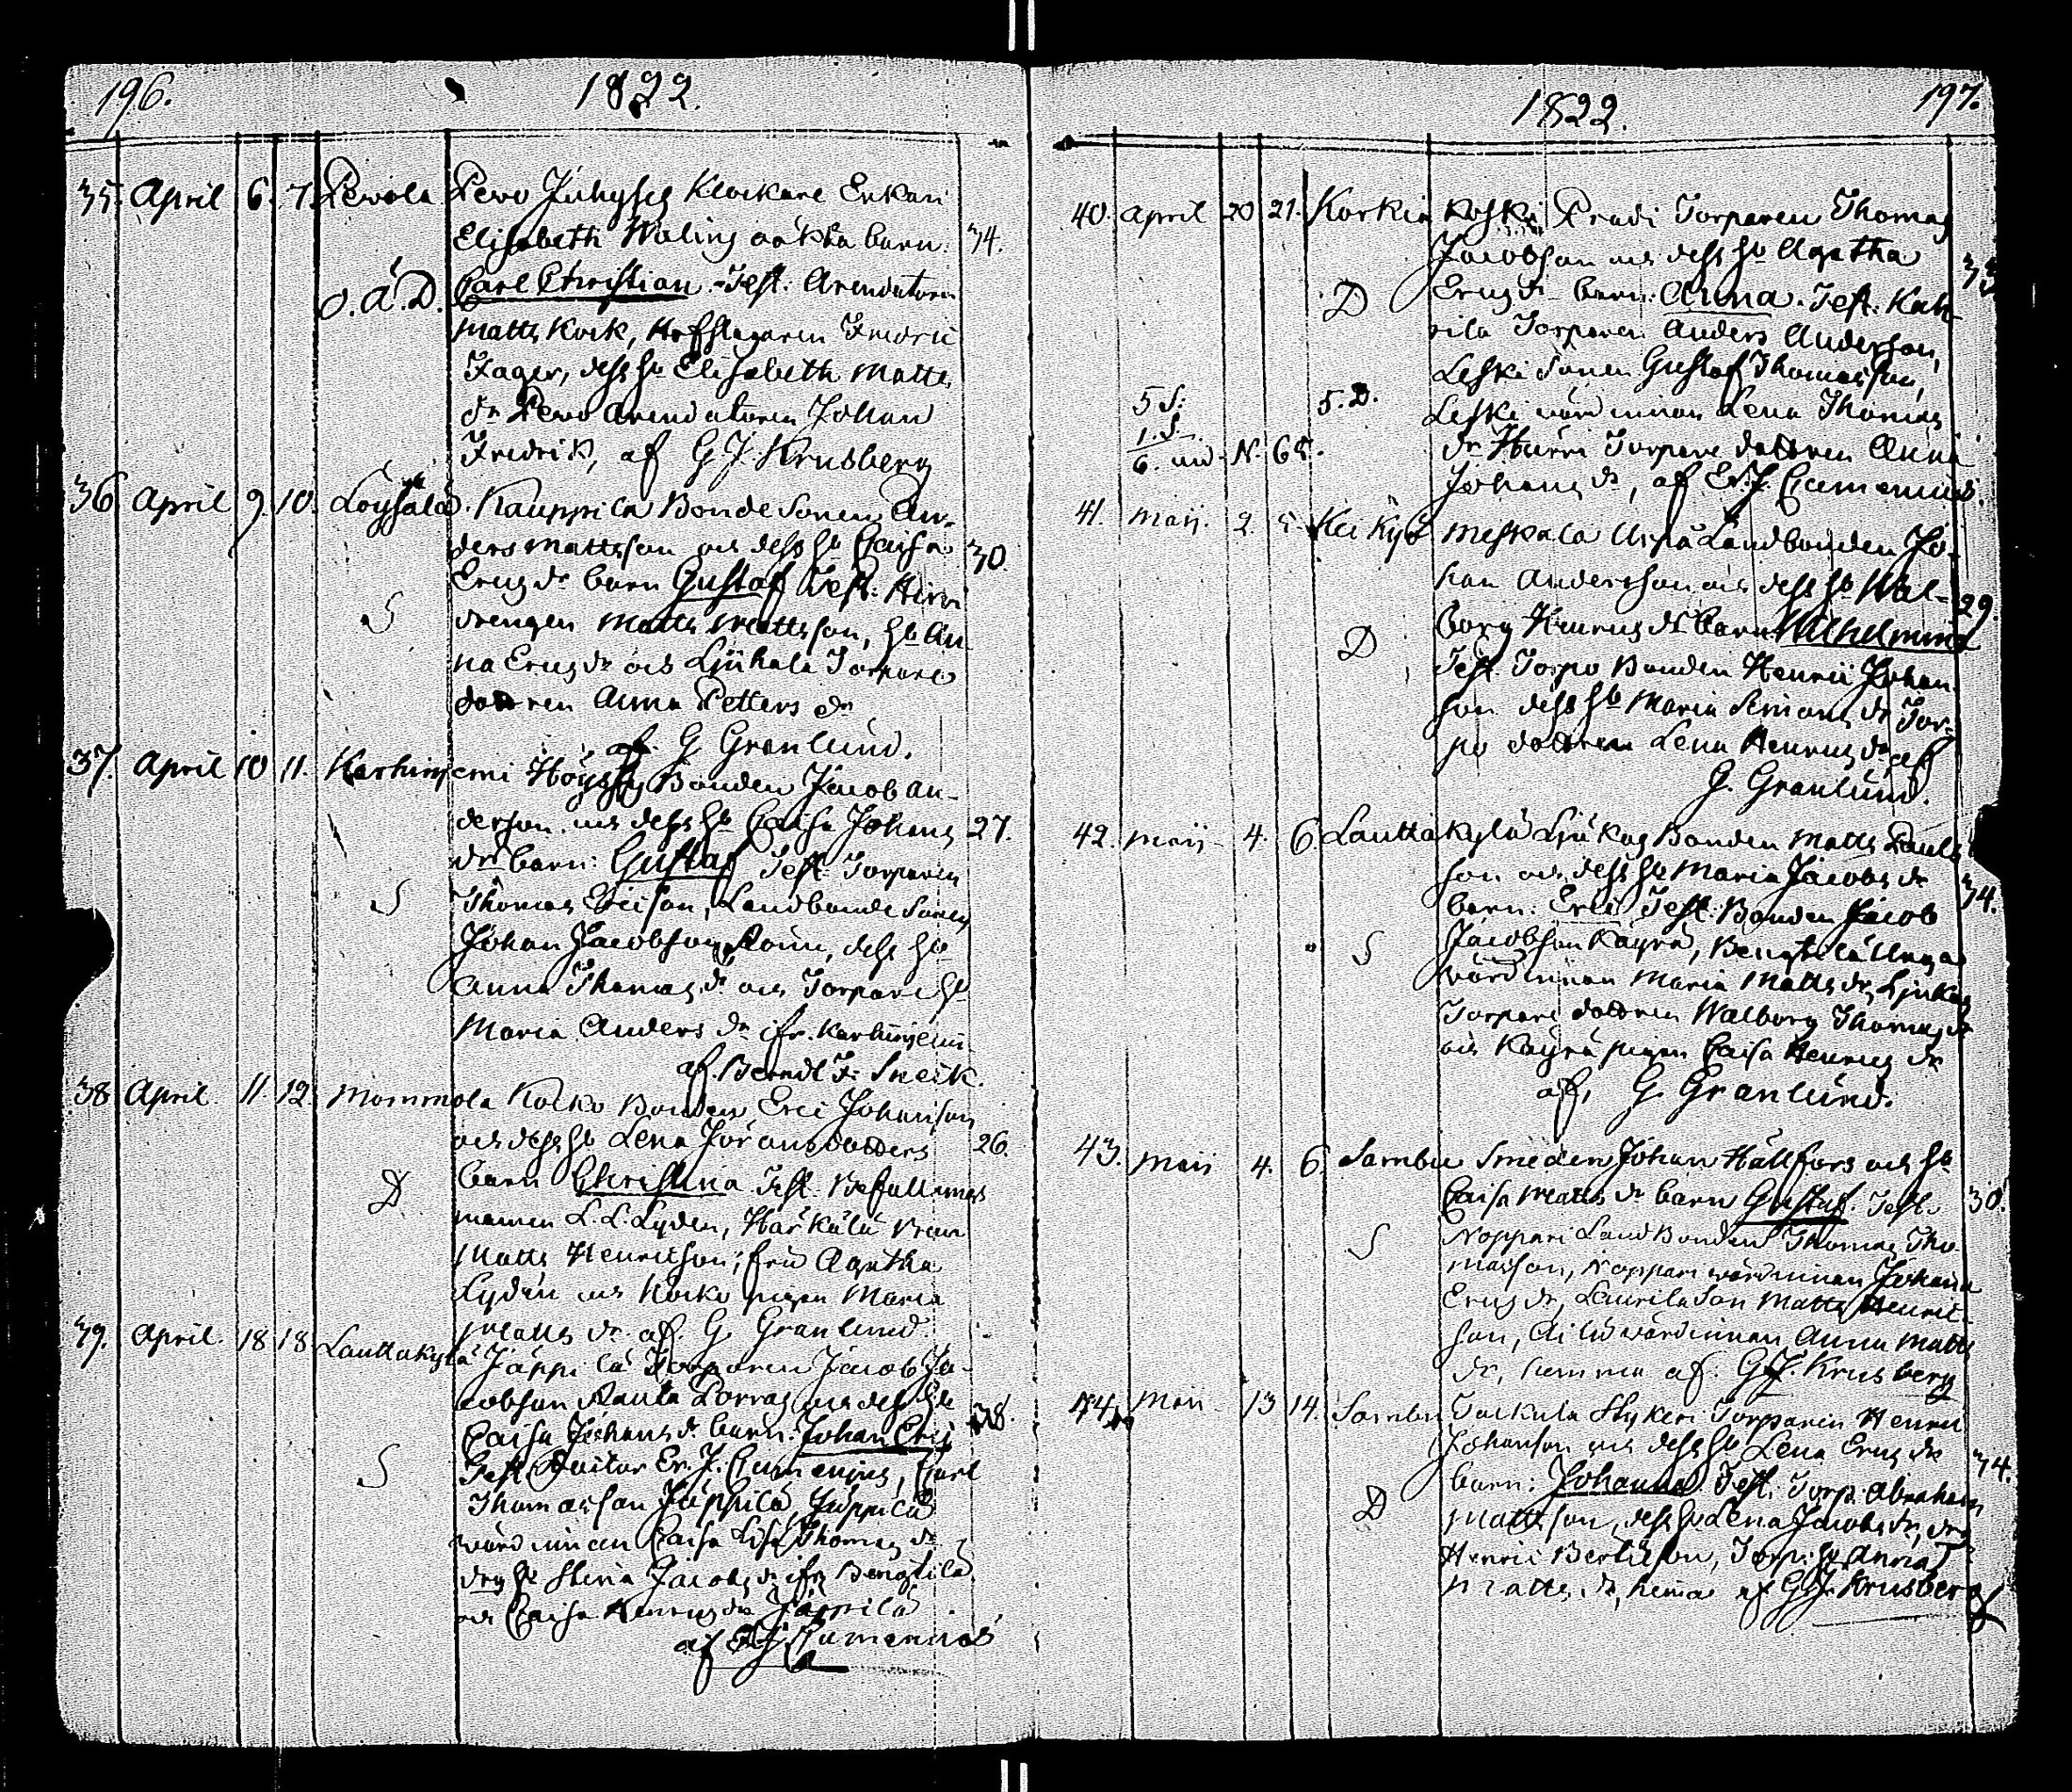 196. 1822.
35. April 6. 7. Pevola Pevo Juhysis Klockare Enkan
Elisabeth Walins oäkta barn. 34.
o.ä.D. Carl Christian. Test: Arendatorn
Matts Kock, Hofslagaren Fredric
Fager, dess h. Elisabeth Matts
dr Pevo Arendatoren Johan
Fredrik, af G J Krusberg
36 April 9. 10. Loysälä. Kauppila Bonde Sonen An-
ders Mattsson och dess h. Caisa 30.
Ericsdr barn Gustaf Test: Hirvi
S drengen Matts Mattsson, h. An-
na Ericsdr och Ljuhala Torpare
dottren Anna Petters dr
af. G Granlund.
37. April 10 11. Karhiniemi Höyssy Bonden Jacob An-
derson och dess h. Caisa Johans 27.
dr barn: Gustaf Test: Torparen
S Thomas Ericson, Landbonde Sonen
Johan Jacobson, dess h.
Anna Thomas dr och Torpare h.
Maria Anders dr ifr. Karhiniemi
af. Berndt F. Sneck.
38 April. 11. 12. Mommola Kocko Bonden Eric Johanson
och dess h. Lena Jöransdotters 26.
D barn Christina Test. Befallnings
mannen L. L. Lyden, Härkälä
Matts Henricson, fru Agatha
Lyden och Kocko pigan Maria
Matts dr af. G Granlund.
39. April. 18 18 Lauttakylä Jäppilä Torparen Jacob Ja-
cobson Rauta Porras och dess h. 38.
Caisa Johans dr barn: Johan Eric
S Test Er. J. Cumenius, Carl
Thomasson Jäppilä, Jäppilä
värdinnan Caisa Lisa Thomas dr
drg h. Stina Jacobs dr ifr Bengtilä
och Caisa Henrics dr Jäppilä
af E J Cumenius
1822. 197.
40. April 20 21. Korkia Koski Pradi Torparen Thomas
Jacobson och dess h. Agatha 33
D Erics dr barn: Anna. Test: Kah-
rila Torparen Anders Anderson,
Leski Sonen Gustaf Thomasson,
5 S: 5. D. Leski värdinnan Lena Thomas
1. S.
6. und. N. 65. dr Hurri Torpare dottren Anna
Johans dr, af Er. J. Cumenius.
41. Maij. 2. 5. Kei Kyö Meskala Uspå Landbonden Jo-
han Anderson och dess h. Wal- 29.
D borg Henrics dr barn Wilhelmina
Test. Torpo Bonden Henric Johan-
son dess h. Maria Simons dr Tor-
po dottren Lena Henrics dr af
G. Granlund.
42. Maij 4. 6. Lauttakylä Ljukas Bonden Matts Pauls
son och dess h. Maria Jacobs dr
barn: Eric Test: Bonden Jacob 34.
S Jacobson Käyrä, Bengtilä Unga
värdinnan Maria Matts dr, Ljukas
Torpare dottren Walborg Thomas dr
och Käyrä pigan Caisa Henrics dr
af, G. Granlund.
43. Maij 4. 6. Sambu Smeden Johan Hällfors och h.
Caisa Matts dr barn Gustaf. Test. 30.
S Noppari Land Bonden Thomas Tho-
masson, Noppari värdinnan Johanna
Erics dr, Laurila Son Matts Henric-
son, värdinnan Anna Matts
dr, hemma af. G J. Krusberg
44 Maij 13 14. Sambu Torkula Stykeri Torparen Henric
Johanson och dess h. Lena Erics dr 34.
barn: Johanna. Test. Torp: Abraham
D Mattsson, dess h. Lena Jacobs dr, drg
Henric Bertilson, Torp: h. Anna
Matts dr, hemma af G J. Krusberg